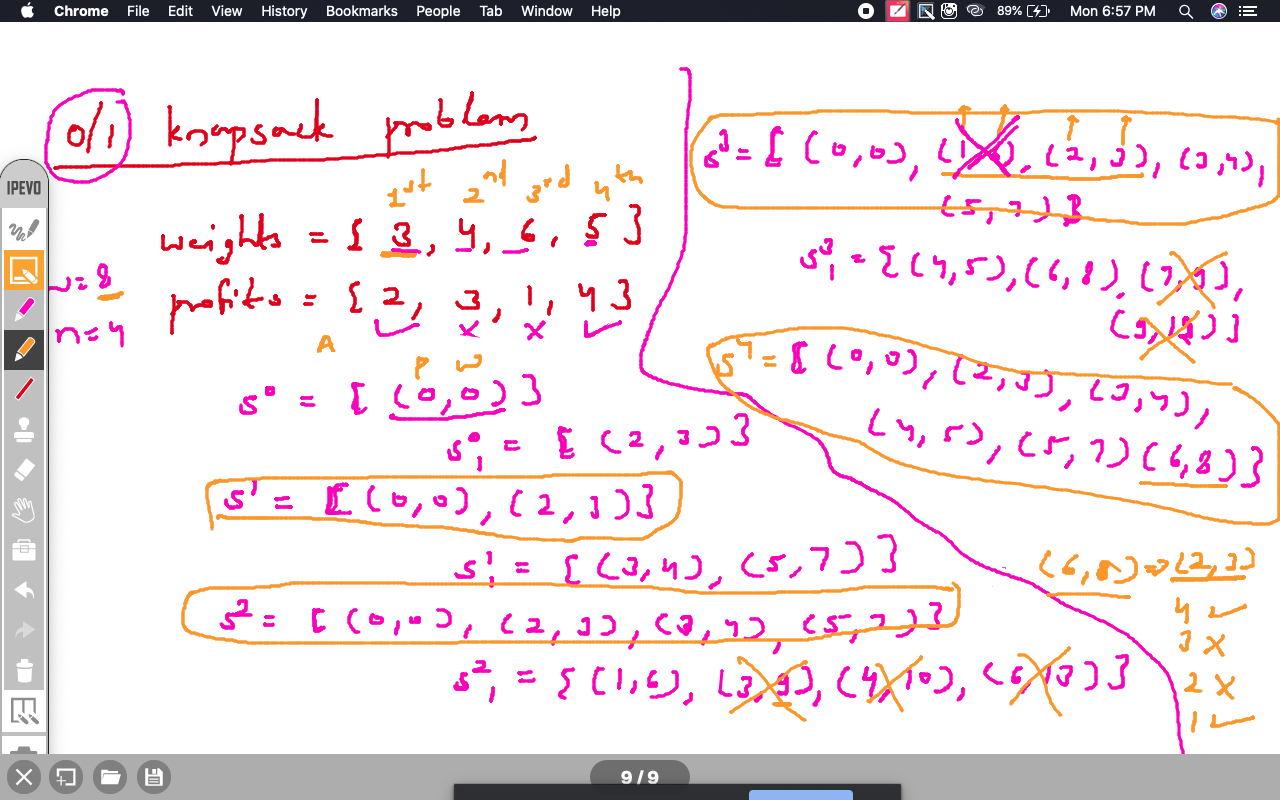 Chrome File Edit View History Bookmarks People Tab Window Help 89% Mon 6:57 PM
0/1 knapsack problem
1st 2nd 3rd 4th
weights = { 3, 4, 6, 5 }
w=8
profits = { 2, 3, 1, 4 }
n=4
A P W
S⁰ = { (0,0) }
S⁰₁ = { (2,3) }
S¹ = { (0,0), (2,3) }
S¹₁ = { (3,4), (5,7) }
S² = { (0,0), (2,3), (3,4), (5,7) }
S²₁ = { (1,6), (3,9), (4,10), (6,13) }
S³ = { (0,0), (1,6), (2,3), (3,4),
(5,7) }
S³₁ = { (4,5), (6,8), (7,9),
(9,12) }
S⁴ = { (0,0), (2,3), (3,4),
(4,5), (5,7) (6,8) }
(6,8) => (2,3)
4 ✓
3 ×
2 ×
1 ✓
IPEVO
9 / 9